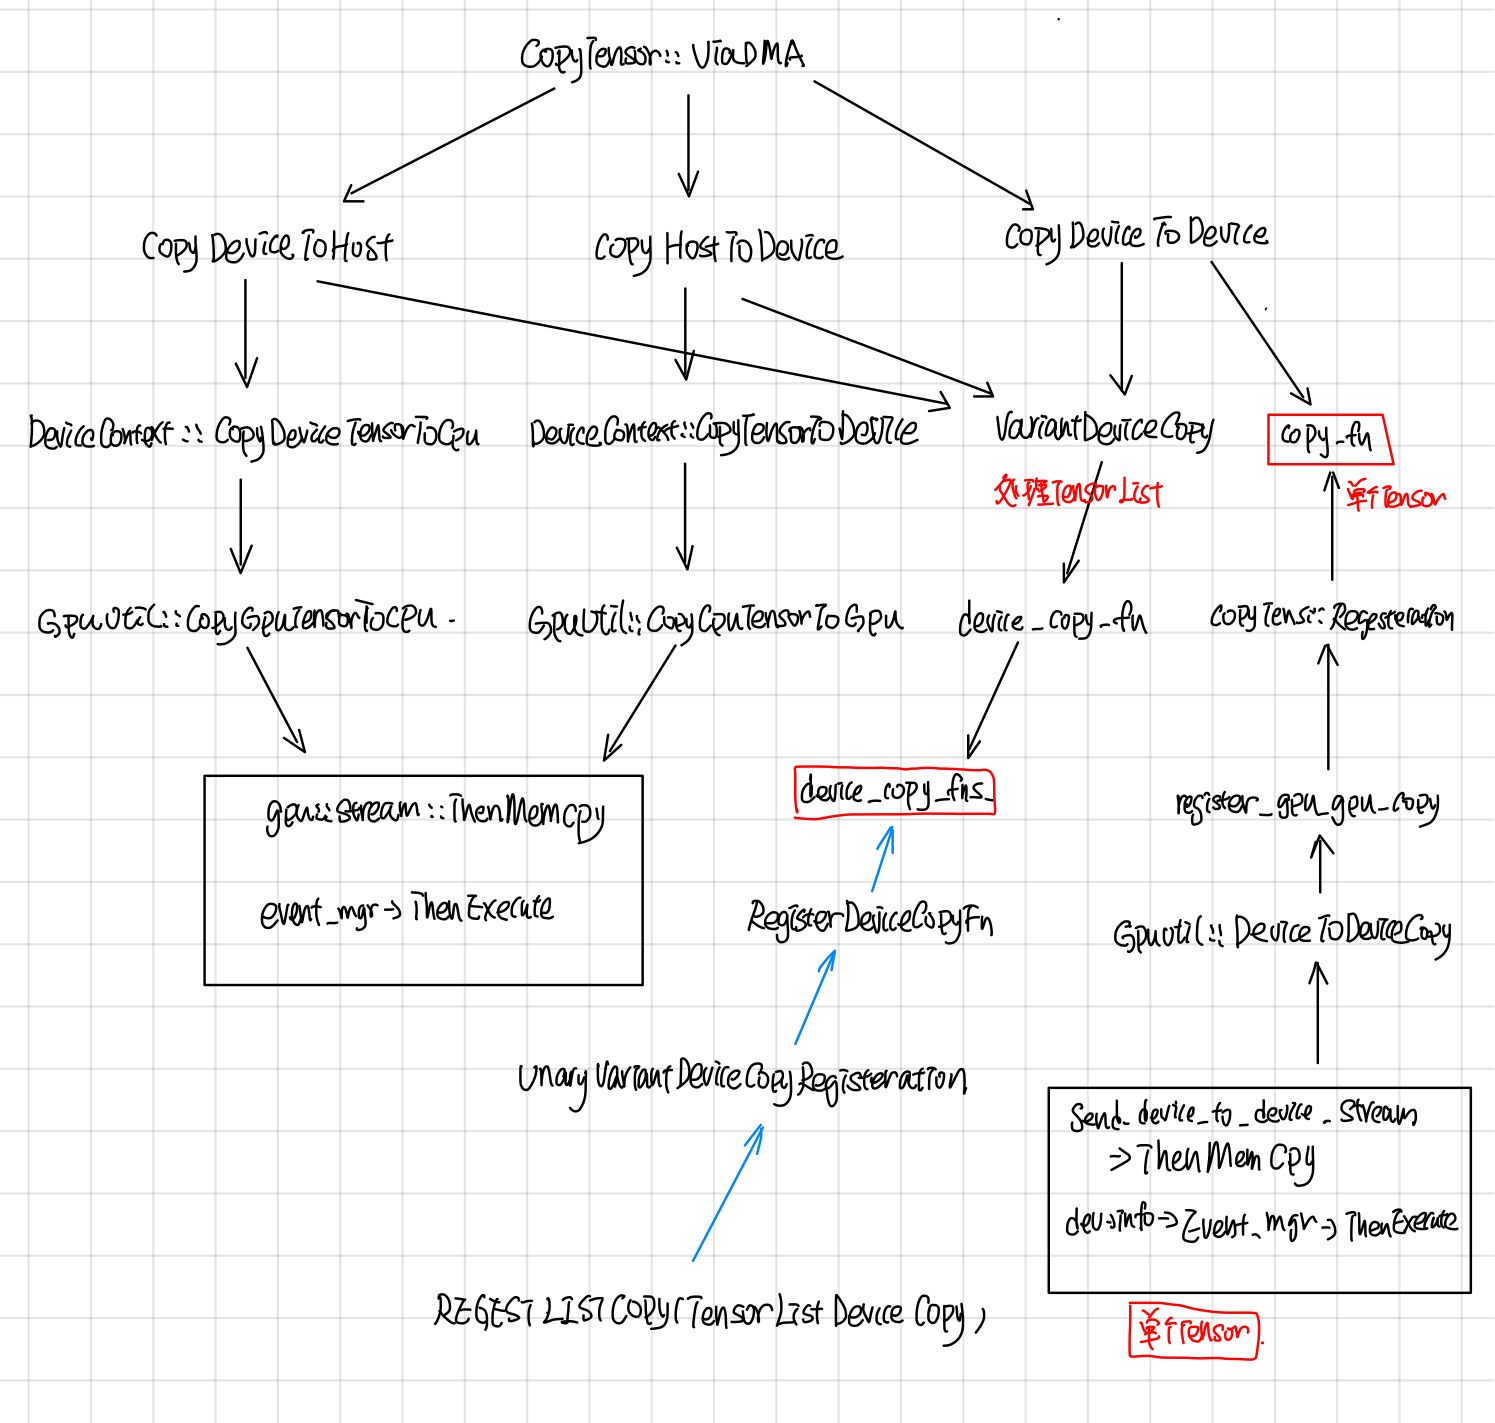 CopyTensor:: ViaDMA
Copy Device To Host
Copy Host To Device
Copy Device To Device
DeviceContext :: CopyDeviceTensorToCpu
DeviceContext::CopyTensorToDevice
VariantDeviceCopy
copy_fn
处理TensorList
单个Tensor
GpuUtil::CopyGpuTensorToCpu
GpuUtil::CopyCpuTensorToGpu
device_copy_fn
CopyTensor::Regesteration
gpu::Stream::ThenMemcpy
device_copy_fns_
register_gpu_gpu_copy
event_mgr->ThenExecute
RegisterDeviceCopyFn
GpuUtil:: DeviceToDeviceCopy
UnaryVariantDeviceCopyRegisteration
Send_device_to_device_stream
->ThenMemCpy
dev->info->Event_mgr->ThenExecute
REGEST LIST COPY(TensorList Device Copy)
单个Tensor.